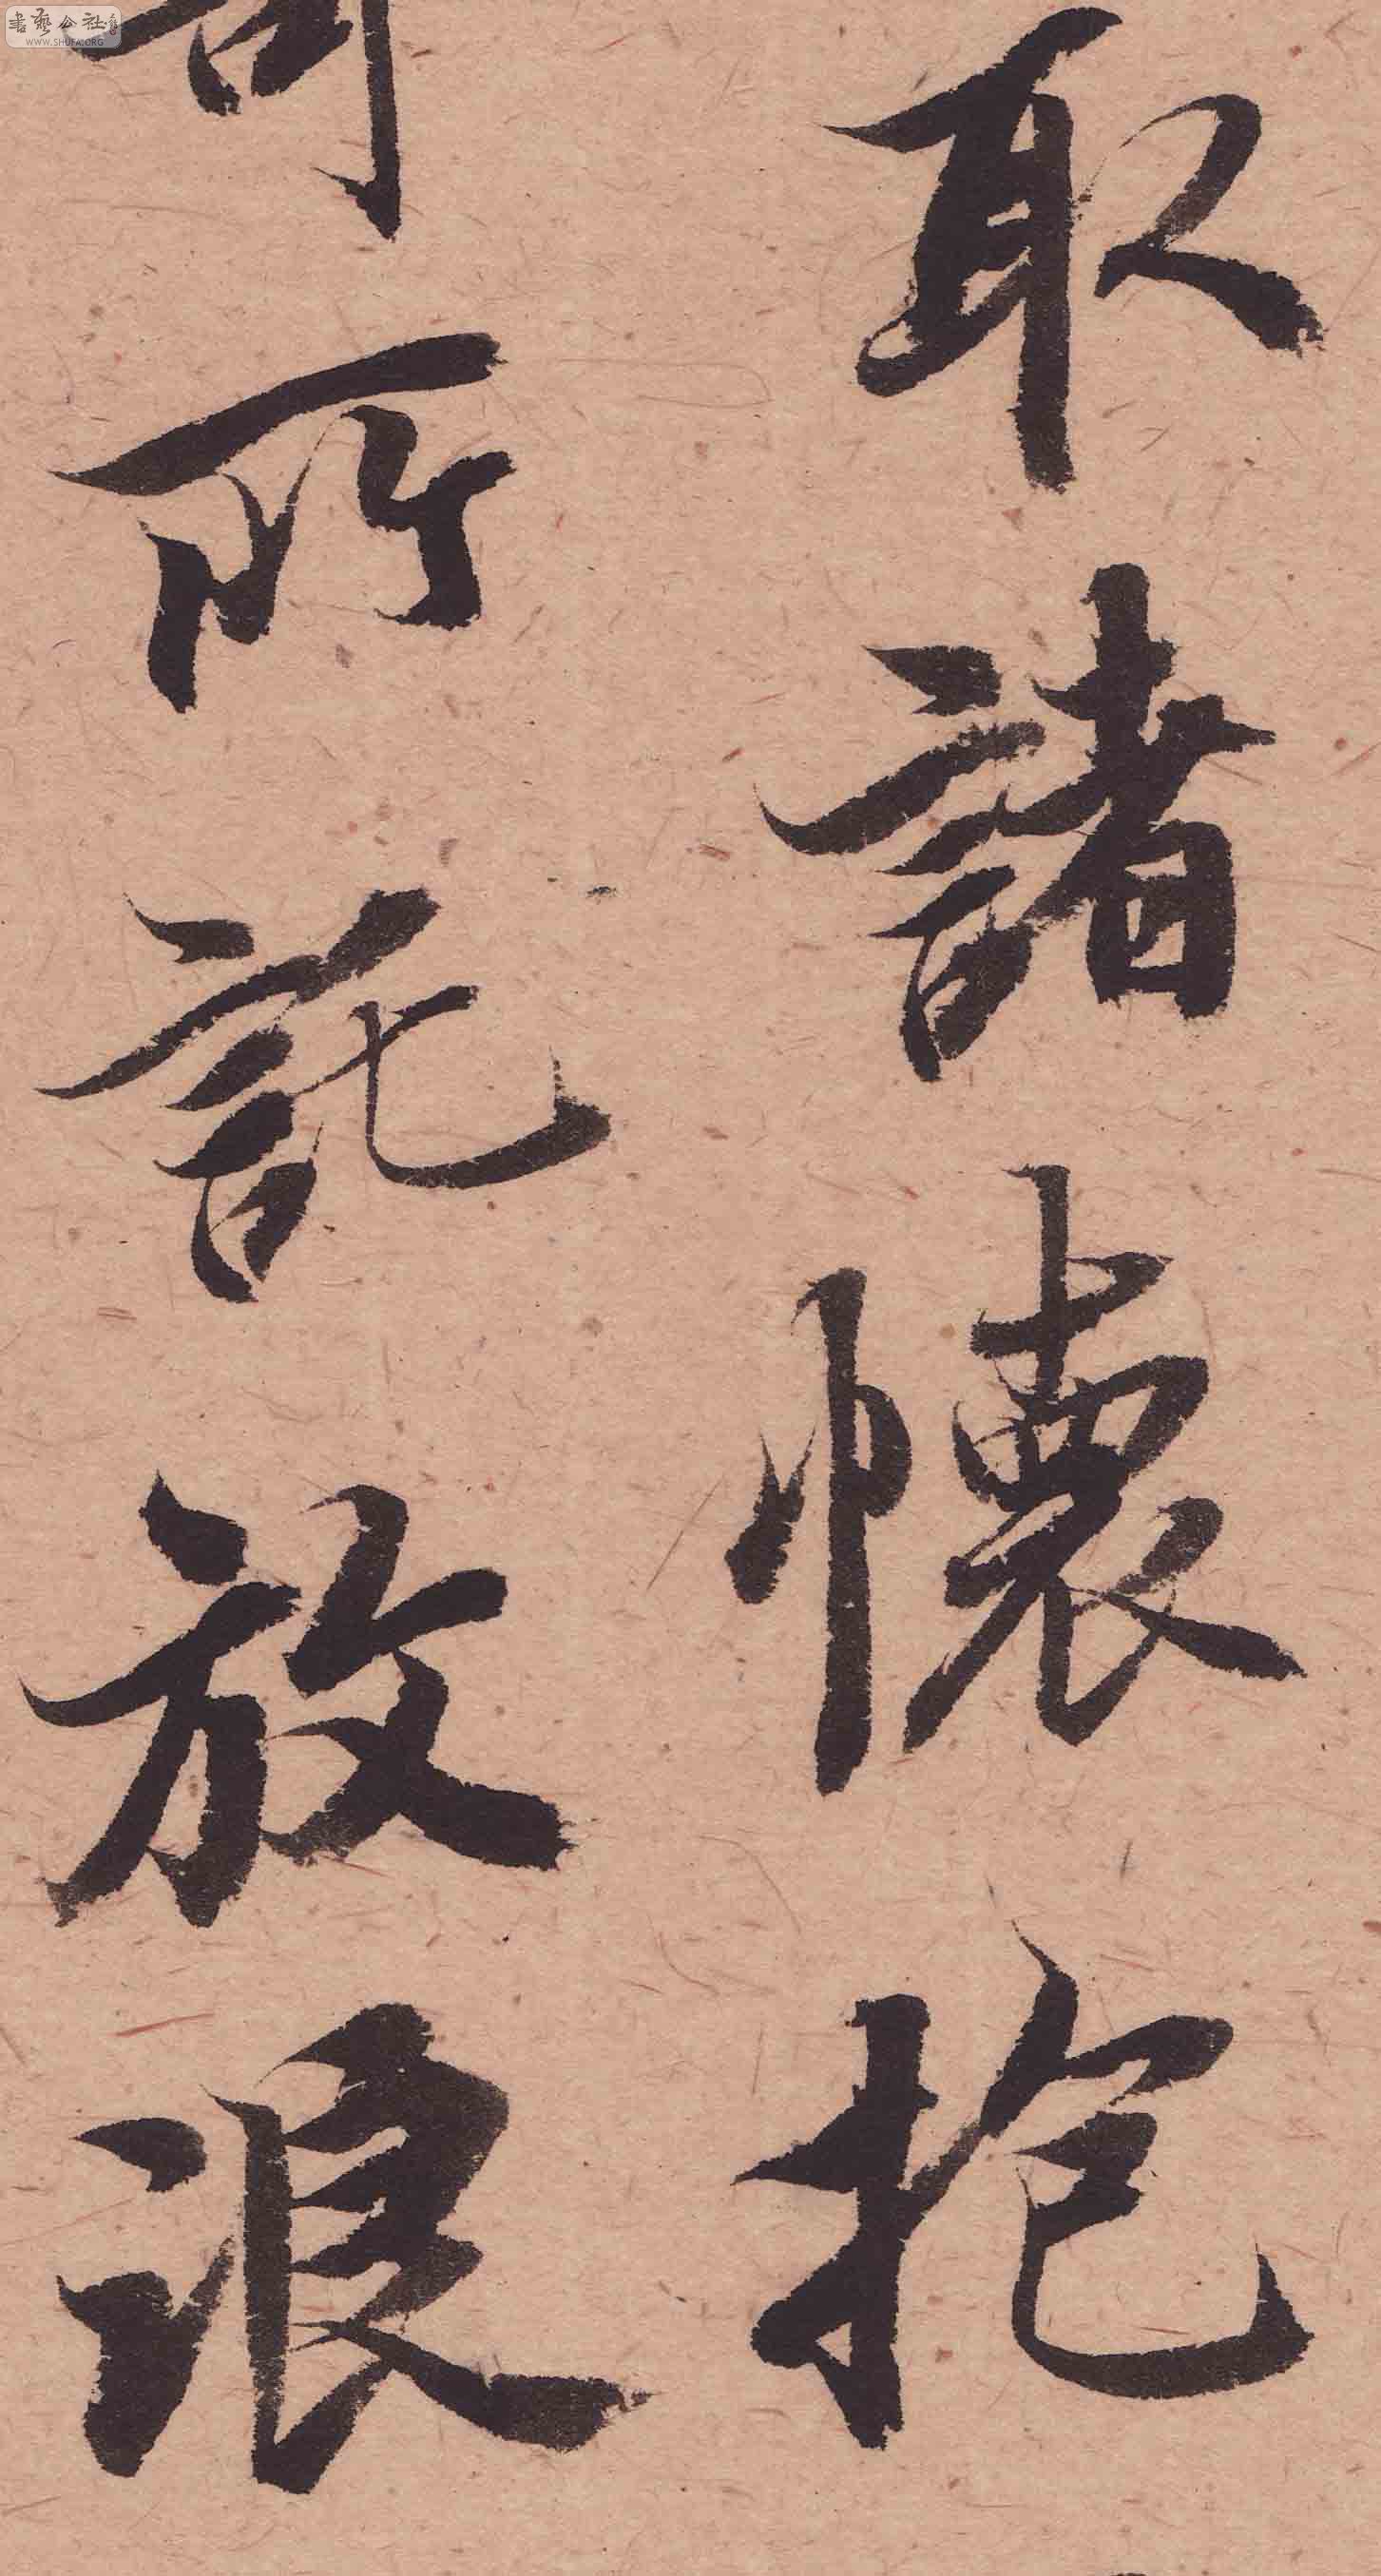 取諸懷抱
寄所託放浪
書藝公社
WWW.SHUFA.ORG